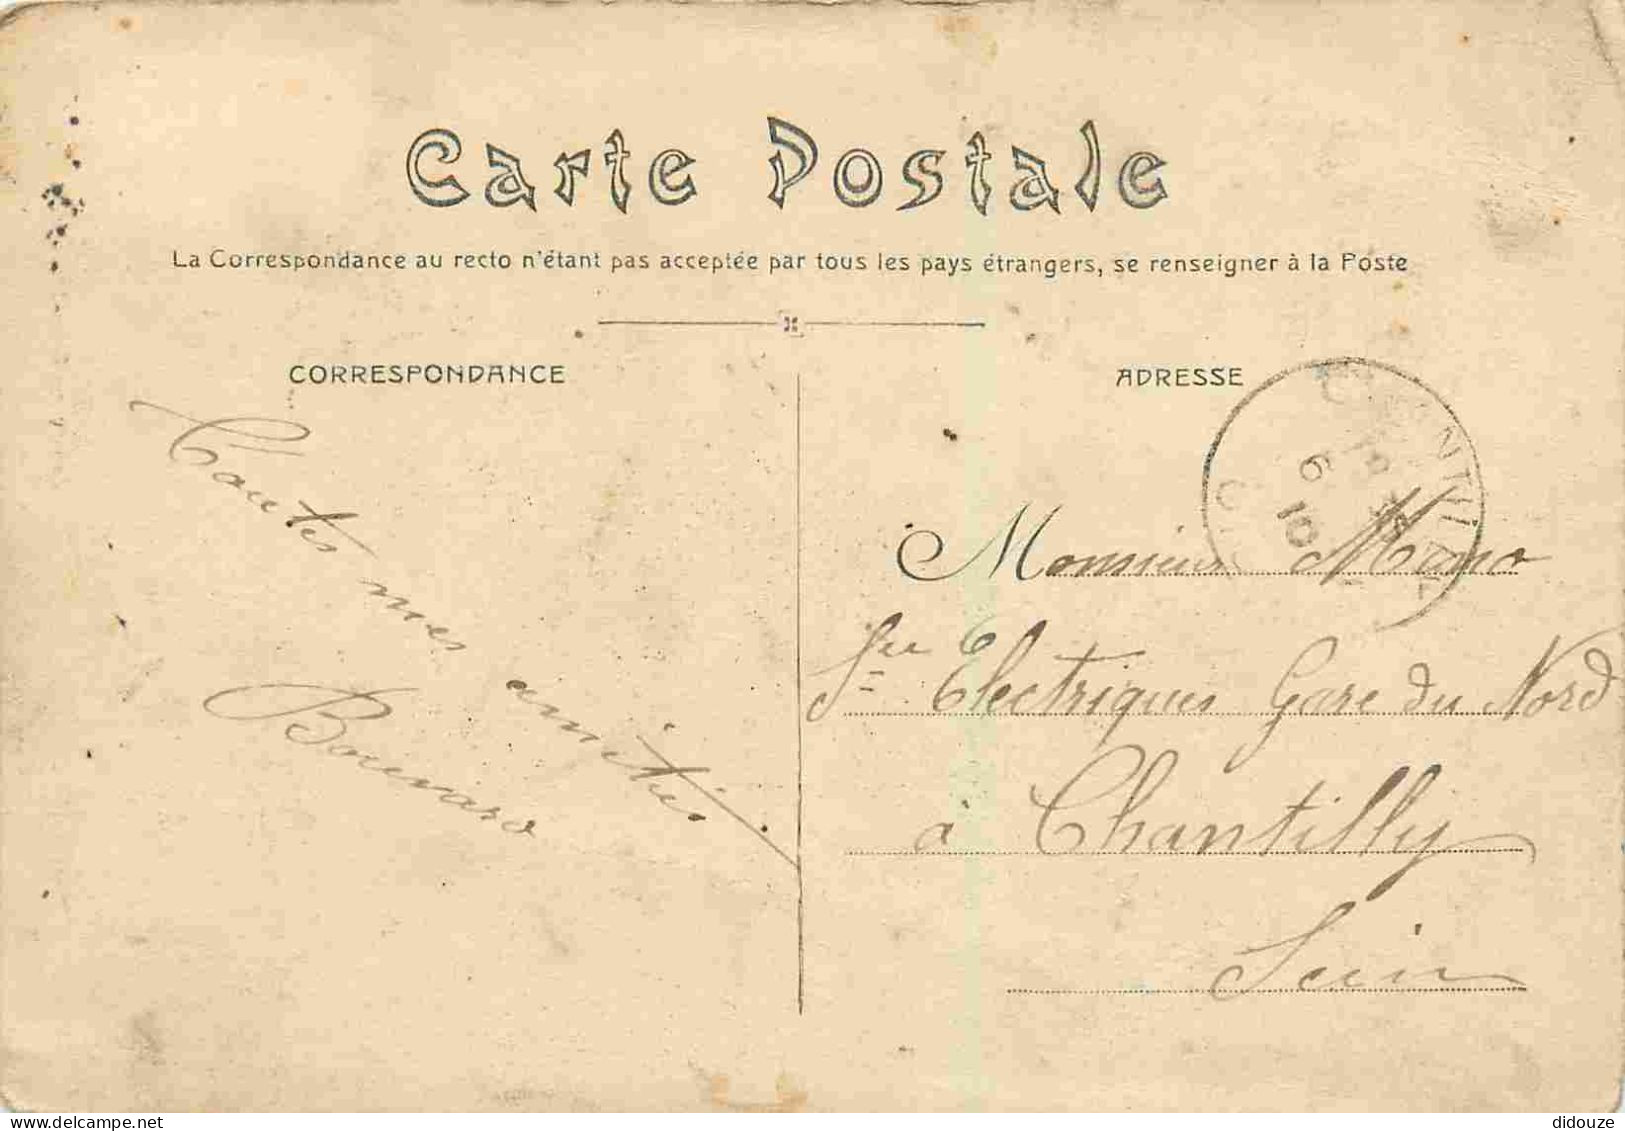 Carte Postale
La Correspondance au recto n'étant pas acceptée par tous les pays étrangers, se renseigner à la Poste
CORRESPONDANCE
Toutes mes amitiés
ADRESSE
6
10
Monsieur
Electriques Gare du Nord
à Chantilly
didouze